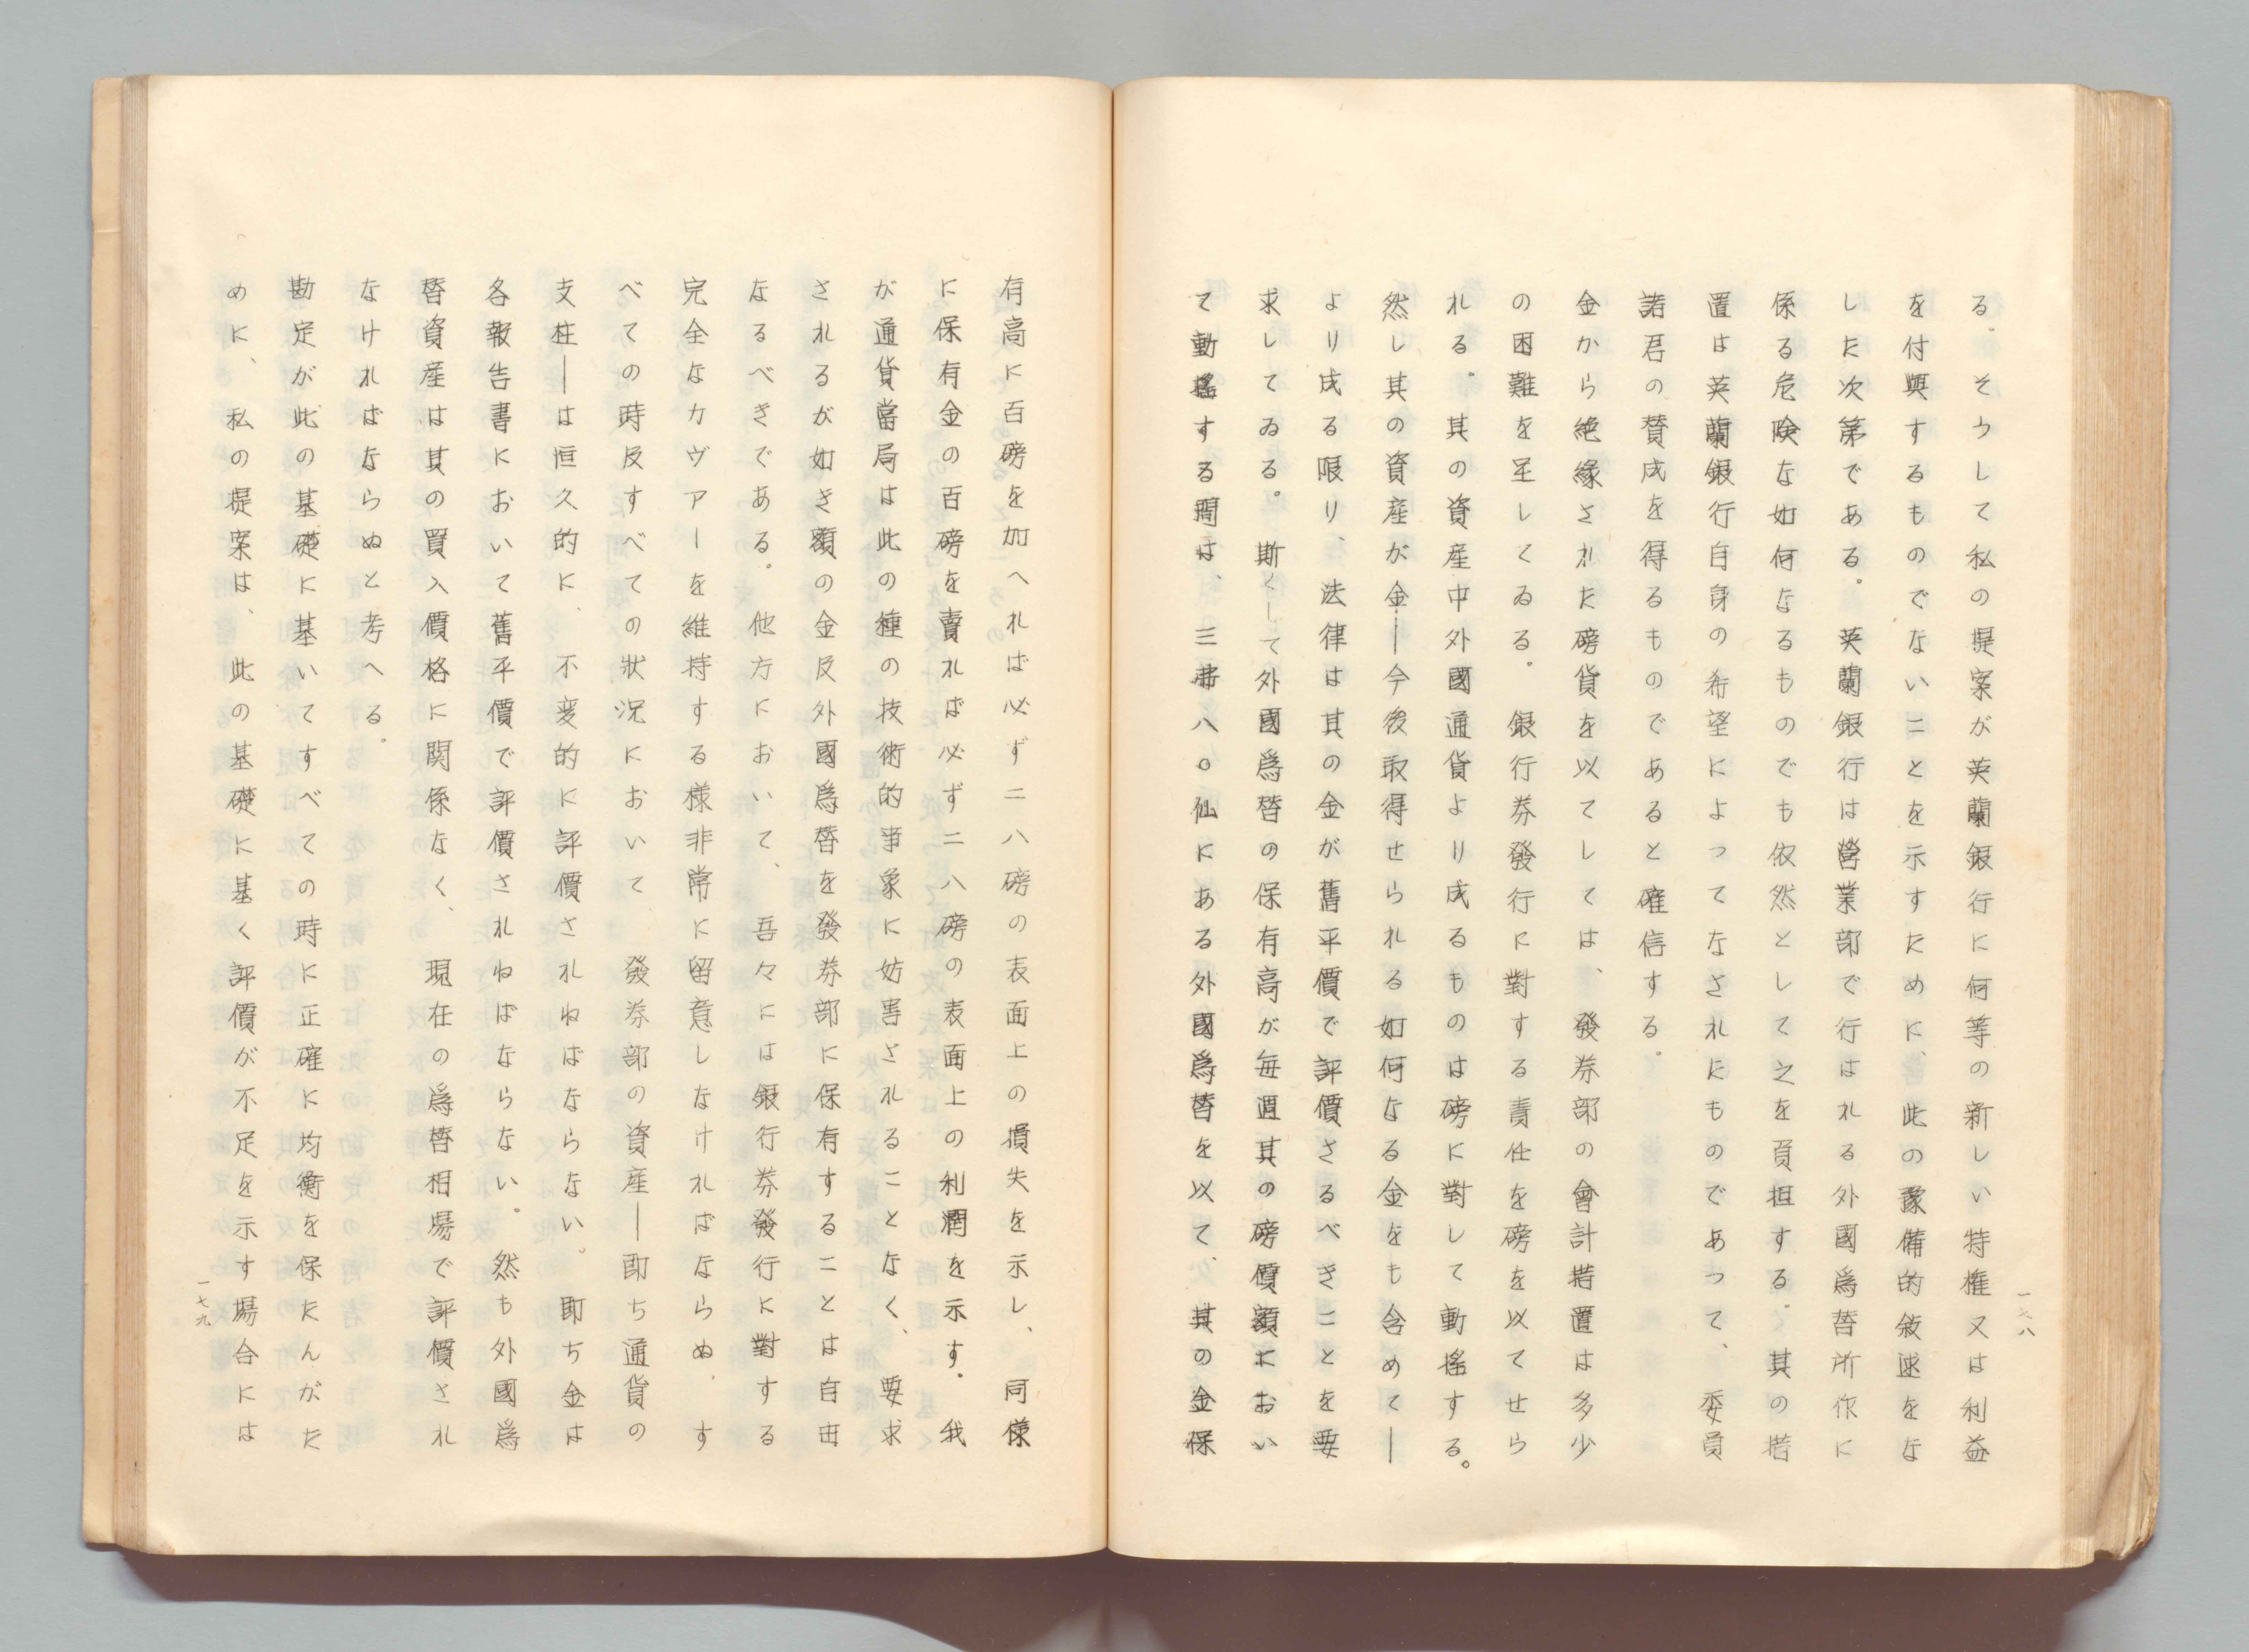 る。そうして私の提案が英蘭銀行に何等の新しい特権又は利益
を付與するものでないことを示すために、此の豫備的敍述をな
した次第である。英蘭銀行は營業部で行はれる外國爲替所作に
係る危険な如何なるものでも依然として之を負担する。其の措
置は英蘭銀行自身の希望によってなされたものであって、委員
諸君の賛成を得るものであると確信する。
金から絶緣された磅貨を以てしては、發券部の會計措置は多少
の困難を呈してゐる。銀行券發行に對する責任を磅を以てせら
れる。其の資産中外國通貨より成るものは磅に對して動搖する。
然し其の資産が金―今後取得せられる如何なる金をも含めて―
より成る限り、法律は其の金が舊平價で評價さるべきことを要
求してゐる。斯くして外國爲替の保有高が毎週其の磅價額におい
て動搖する間は、三弗八〇仙にある外國爲替を以て、其の金保
一七八
有高に百磅を加へれば必ず二八磅の表面上の損失を示し、同様
に保有金の百磅を賣れば必ず二八磅の表面上の利潤を示す。我
が通貨當局は此の種の技術的事象に妨害されることなく、要求
されるが如き額の金及外國爲替を發券部に保有することは自由
なるべきである。他方において、吾々には銀行券發行に對する
完全なカヴァーを維持する様非常に留意しなければならぬ。す
べての時及すべての狀況において發券部の資産―即ち通貨の
支柱―は恒久的に、不変的に評價されねばならない。即ち金は
各報告書において舊平價で評價されねばならない。然も外國爲
替資産は其の買入價格に関係なく、現在の爲替相場で評價され
なければならぬと考へる。
勘定が此の基礎に基いてすべての時に正確に均衡を保たんがた
めに、私の提案は、此の基礎に基く評價が不足を示す場合には
一七九